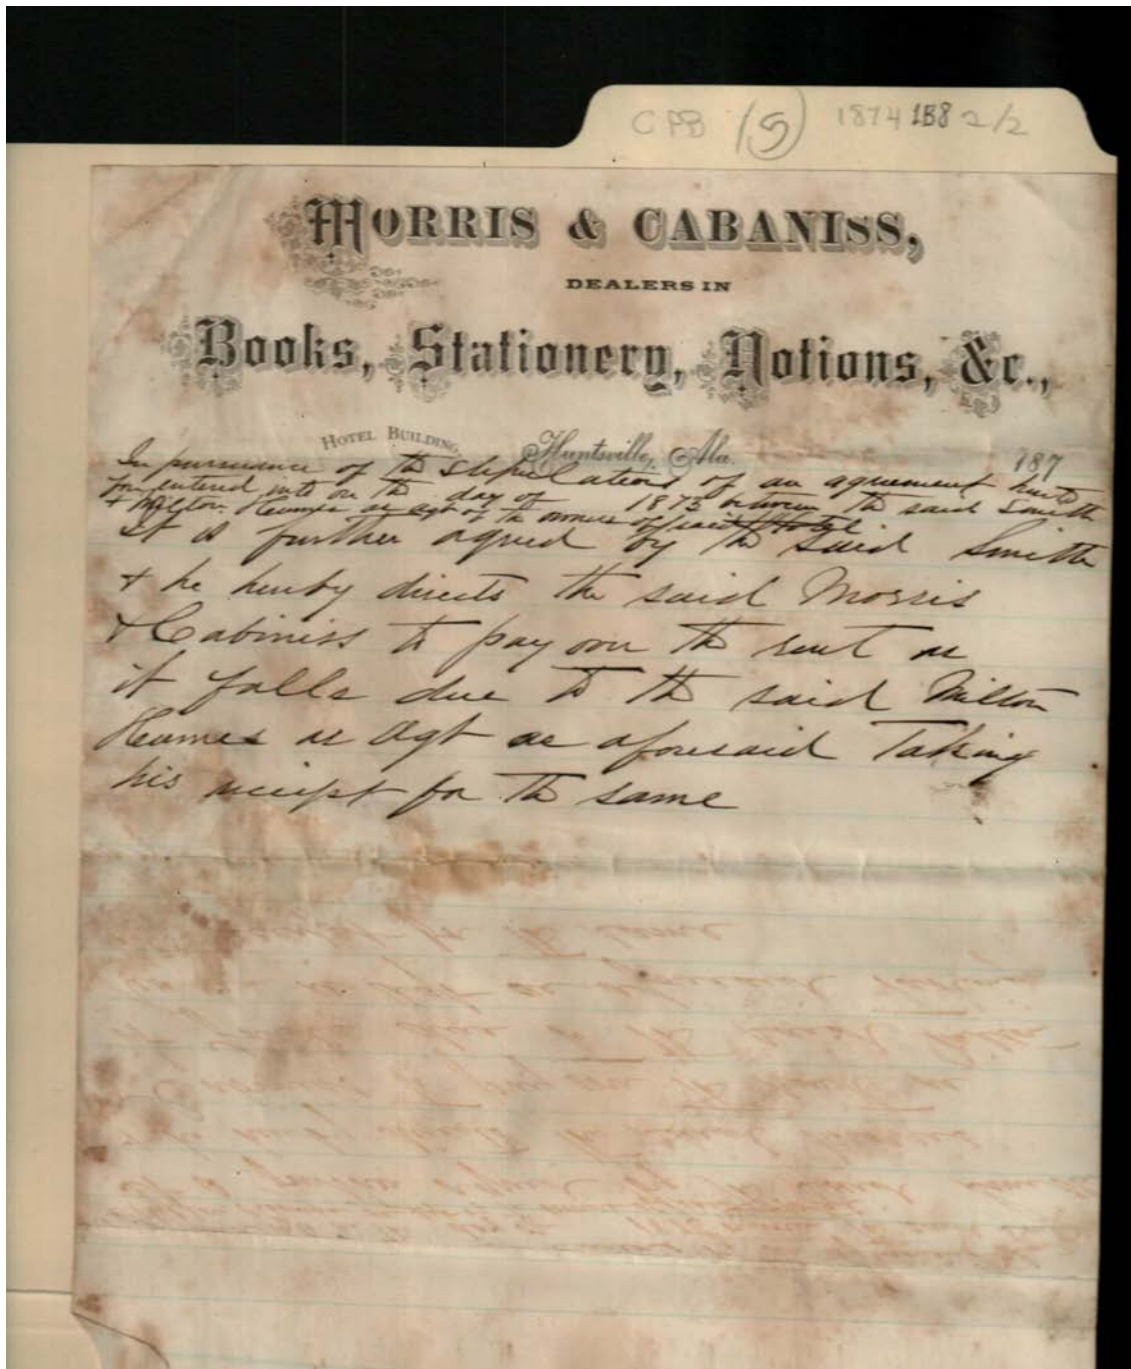 CPB (5) 1874 1B8 2/2
MORRIS & CABANISS,
DEALERS IN
Books, Stationery, Notions, &c.,
HOTEL BUILDING, Huntsville, Ala. 187
In pursuance of the stipulations of an agreement hereto
fore entered into on the day of 1873 between the said Smith
& Milton Humes as agt of the owners of said Hotel
It is further agreed by the said Smith
& he hereby directs the said Morris
& Cabiniss to pay over the rent as
it falls due to the said Milton
Humes as Agt as aforesaid Taking
his receipt for the same